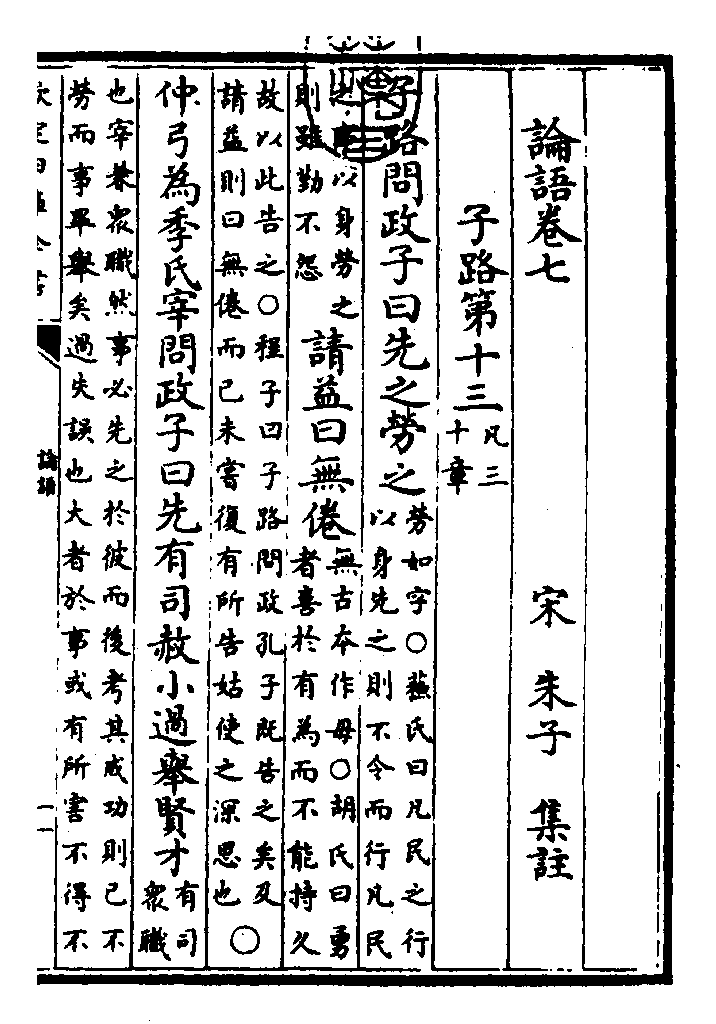 論語卷七 宋 朱子 集註
子路第十三
凡三
十章
子路問政子曰先之勞之
勞如字○蘇氏曰凡民之行
以身先之則不令而行凡民
之事以身勞之
則雖勤不怨
請益曰無倦
無古本作毋○胡氏曰勇
者喜於有為而不能持久
故以此告之○程子曰子路問政孔子既告之矣及
請益則曰無倦而已未嘗復有所告姑使之深思也
○
仲弓為季氏宰問政子曰先有司赦小過舉賢才
有司
衆職
也宰兼衆職然事必先之於彼而後考其成功則已不
勞而事畢舉矣過失誤也大者於事或有所害不得不
欽定四庫全書
論語